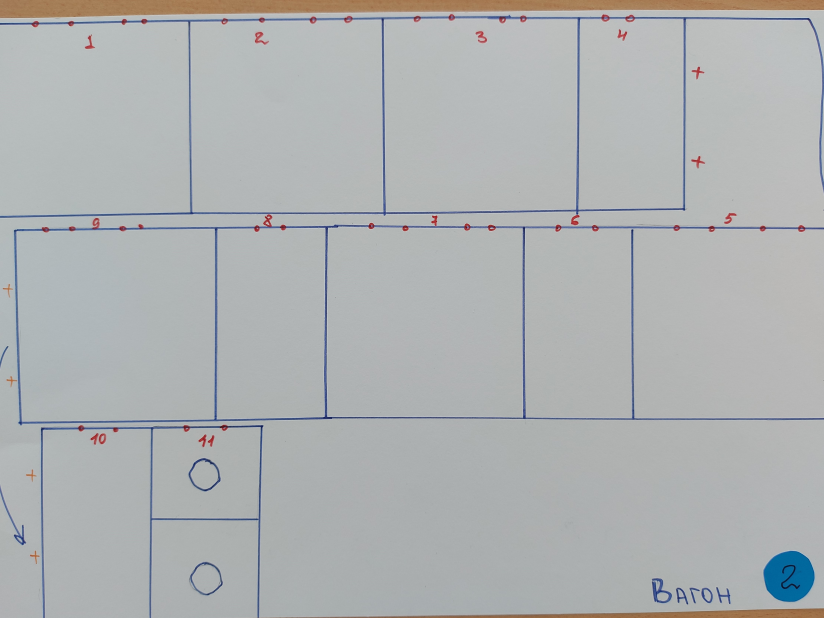 1 2 3 4
+
+
9 8 7 6 5
+
+
10 11
+
+
Вагон 2